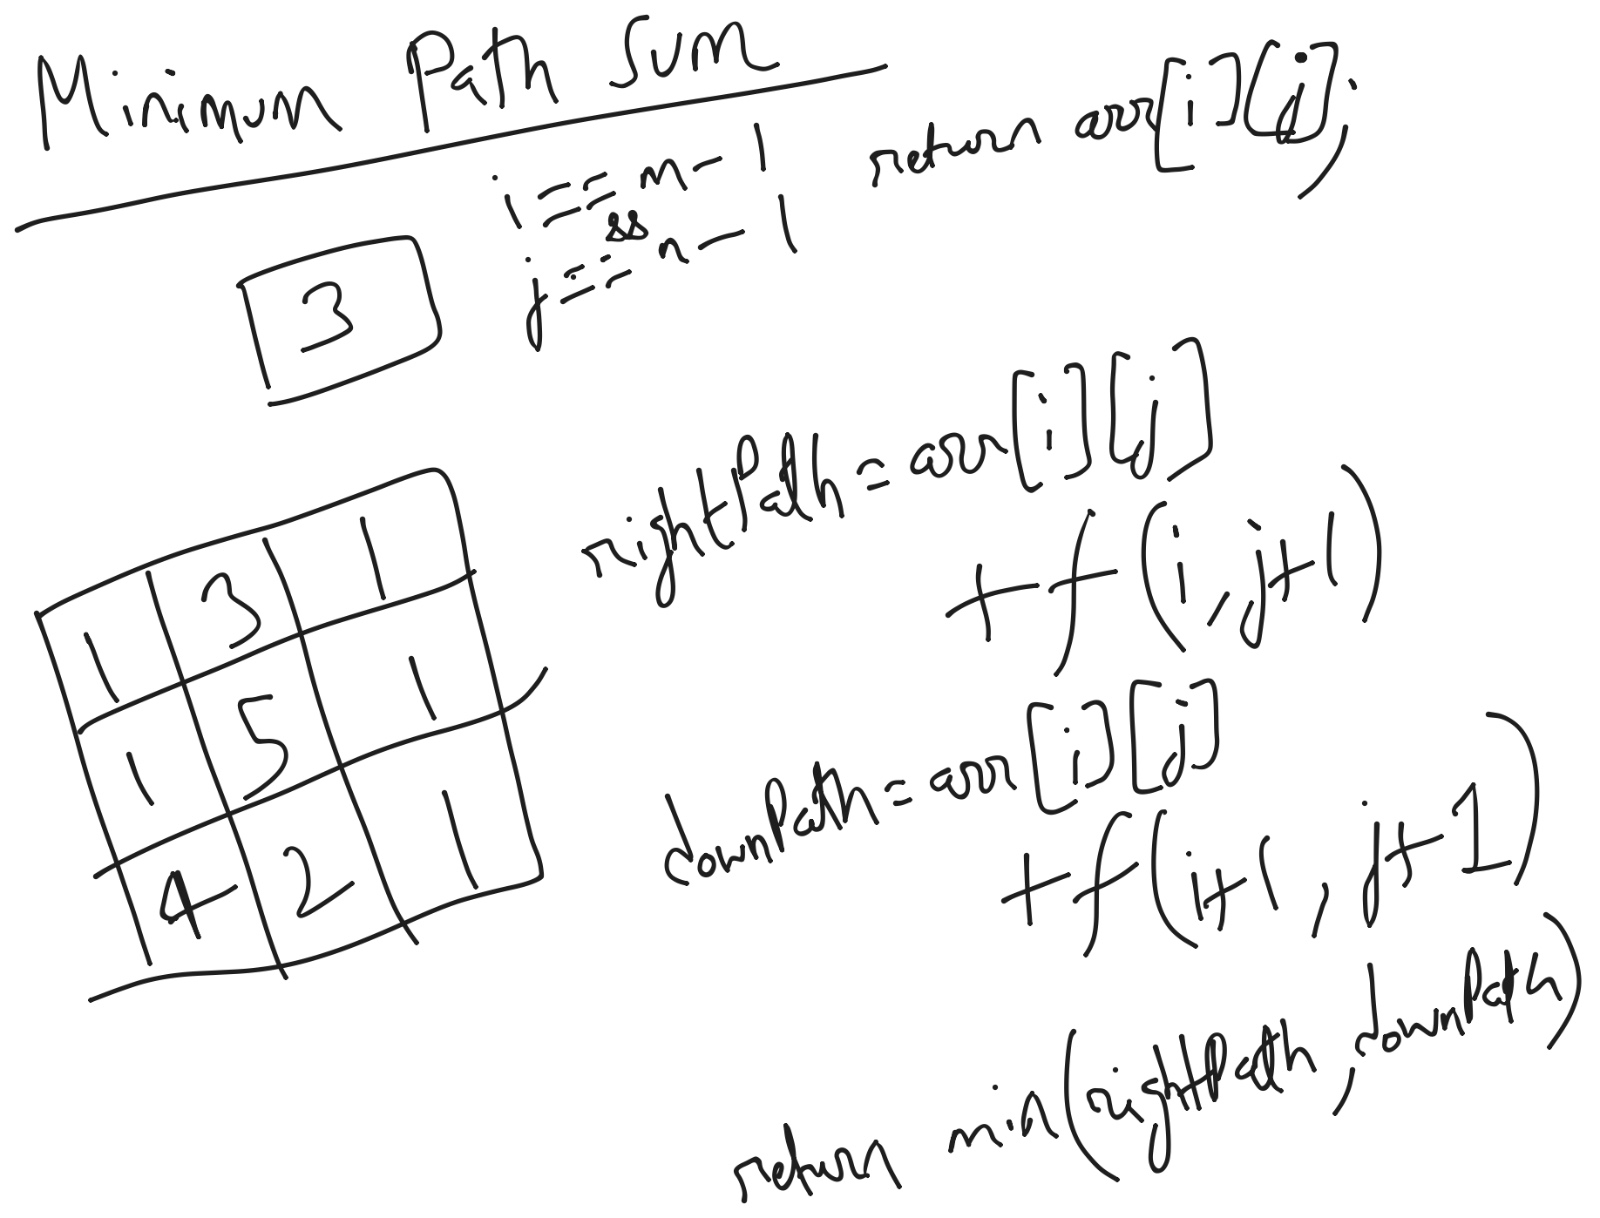 Minimum Path Sum
i == m - 1
&&
j == n - 1
return arr[i][j];
3
rightPath = arr[i][j]
+ f(i, j+1)
downPath = arr[i][j]
+ f(i+1, j+1)
return min(rightPath, downPath)
1 3 1
1 5 1
4 2 1